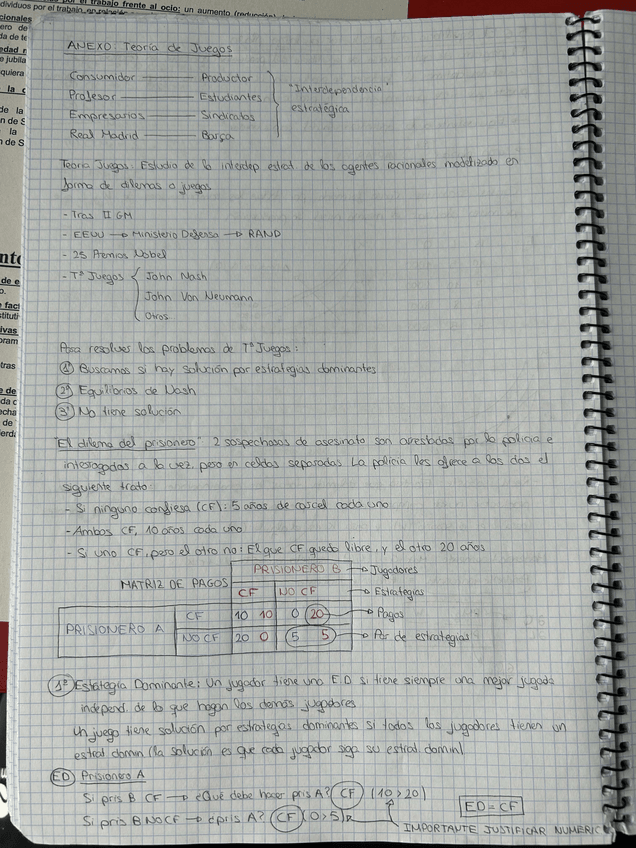 dividuos por el trabajo frente al ocio; un aumento
cionales
ero de
da de te
edad
e jubila
quiera
la
de la
n de S
la
n de S
de e
o.
fact
stituti
ivas
oram
tras
e de
da c
echa
de
erda
ANEXO: Teoría de Juegos
Consumidor — Productor
Profesor — Estudiantes
Empresarios — Sindicatos
Real Madrid — Barça
"Interdependencia
estratégica"
Teoría Juegos: Estudio de la interdep estrat. de los agentes racionales modelizado en
forma de dilemas o juegos
- Tras II GM
- EEUU → Ministerio Defensa → RAND
- 25 Premios Nobel
- Tª Juegos { John Nash
John Von Neumann
Otros
Para resolver los problemas de Tª Juegos:
1º Buscamos si hay solución por estrategias dominantes
2º Equilibrios de Nash
3º No tiene solución
"El dilema del prisionero" 2 sospechosos de asesinato son arrestados por la policía e
interrogados a la vez, pero en celdas separadas. La policía les ofrece a los dos el
siguiente trato:
- Si ninguno confiesa (CF): 5 años de cárcel cada uno
- Ambos CF, 10 años cada uno
- Si uno CF, pero el otro no: El que CF queda libre, y el otro 20 años
PRISIONERO B → Jugadores
MATRIZ DE PAGOS CF NO CF → Estrategias
PRISIONERO A CF 10 10 0 20 → Pagos
NO CF 20 0 5 5 → Par de estrategias
1º Estrategia Dominante: Un jugador tiene una E.D si tiene siempre una mejor jugada
independ. de lo que hagan los demás jugadores
Un juego tiene solución por estrategias dominantes si todos los jugadores tienen un
estrat domin (la solución es que cada jugador siga su estrat. domin)
ED Prisionero A
Si pris B CF → ¿Qué debe hacer pris A? CF (10>20)
Si pris B NO CF → ¿pris A? CF (0>5)
ED = CF
IMPORTANTE JUSTIFICAR NUMERIC